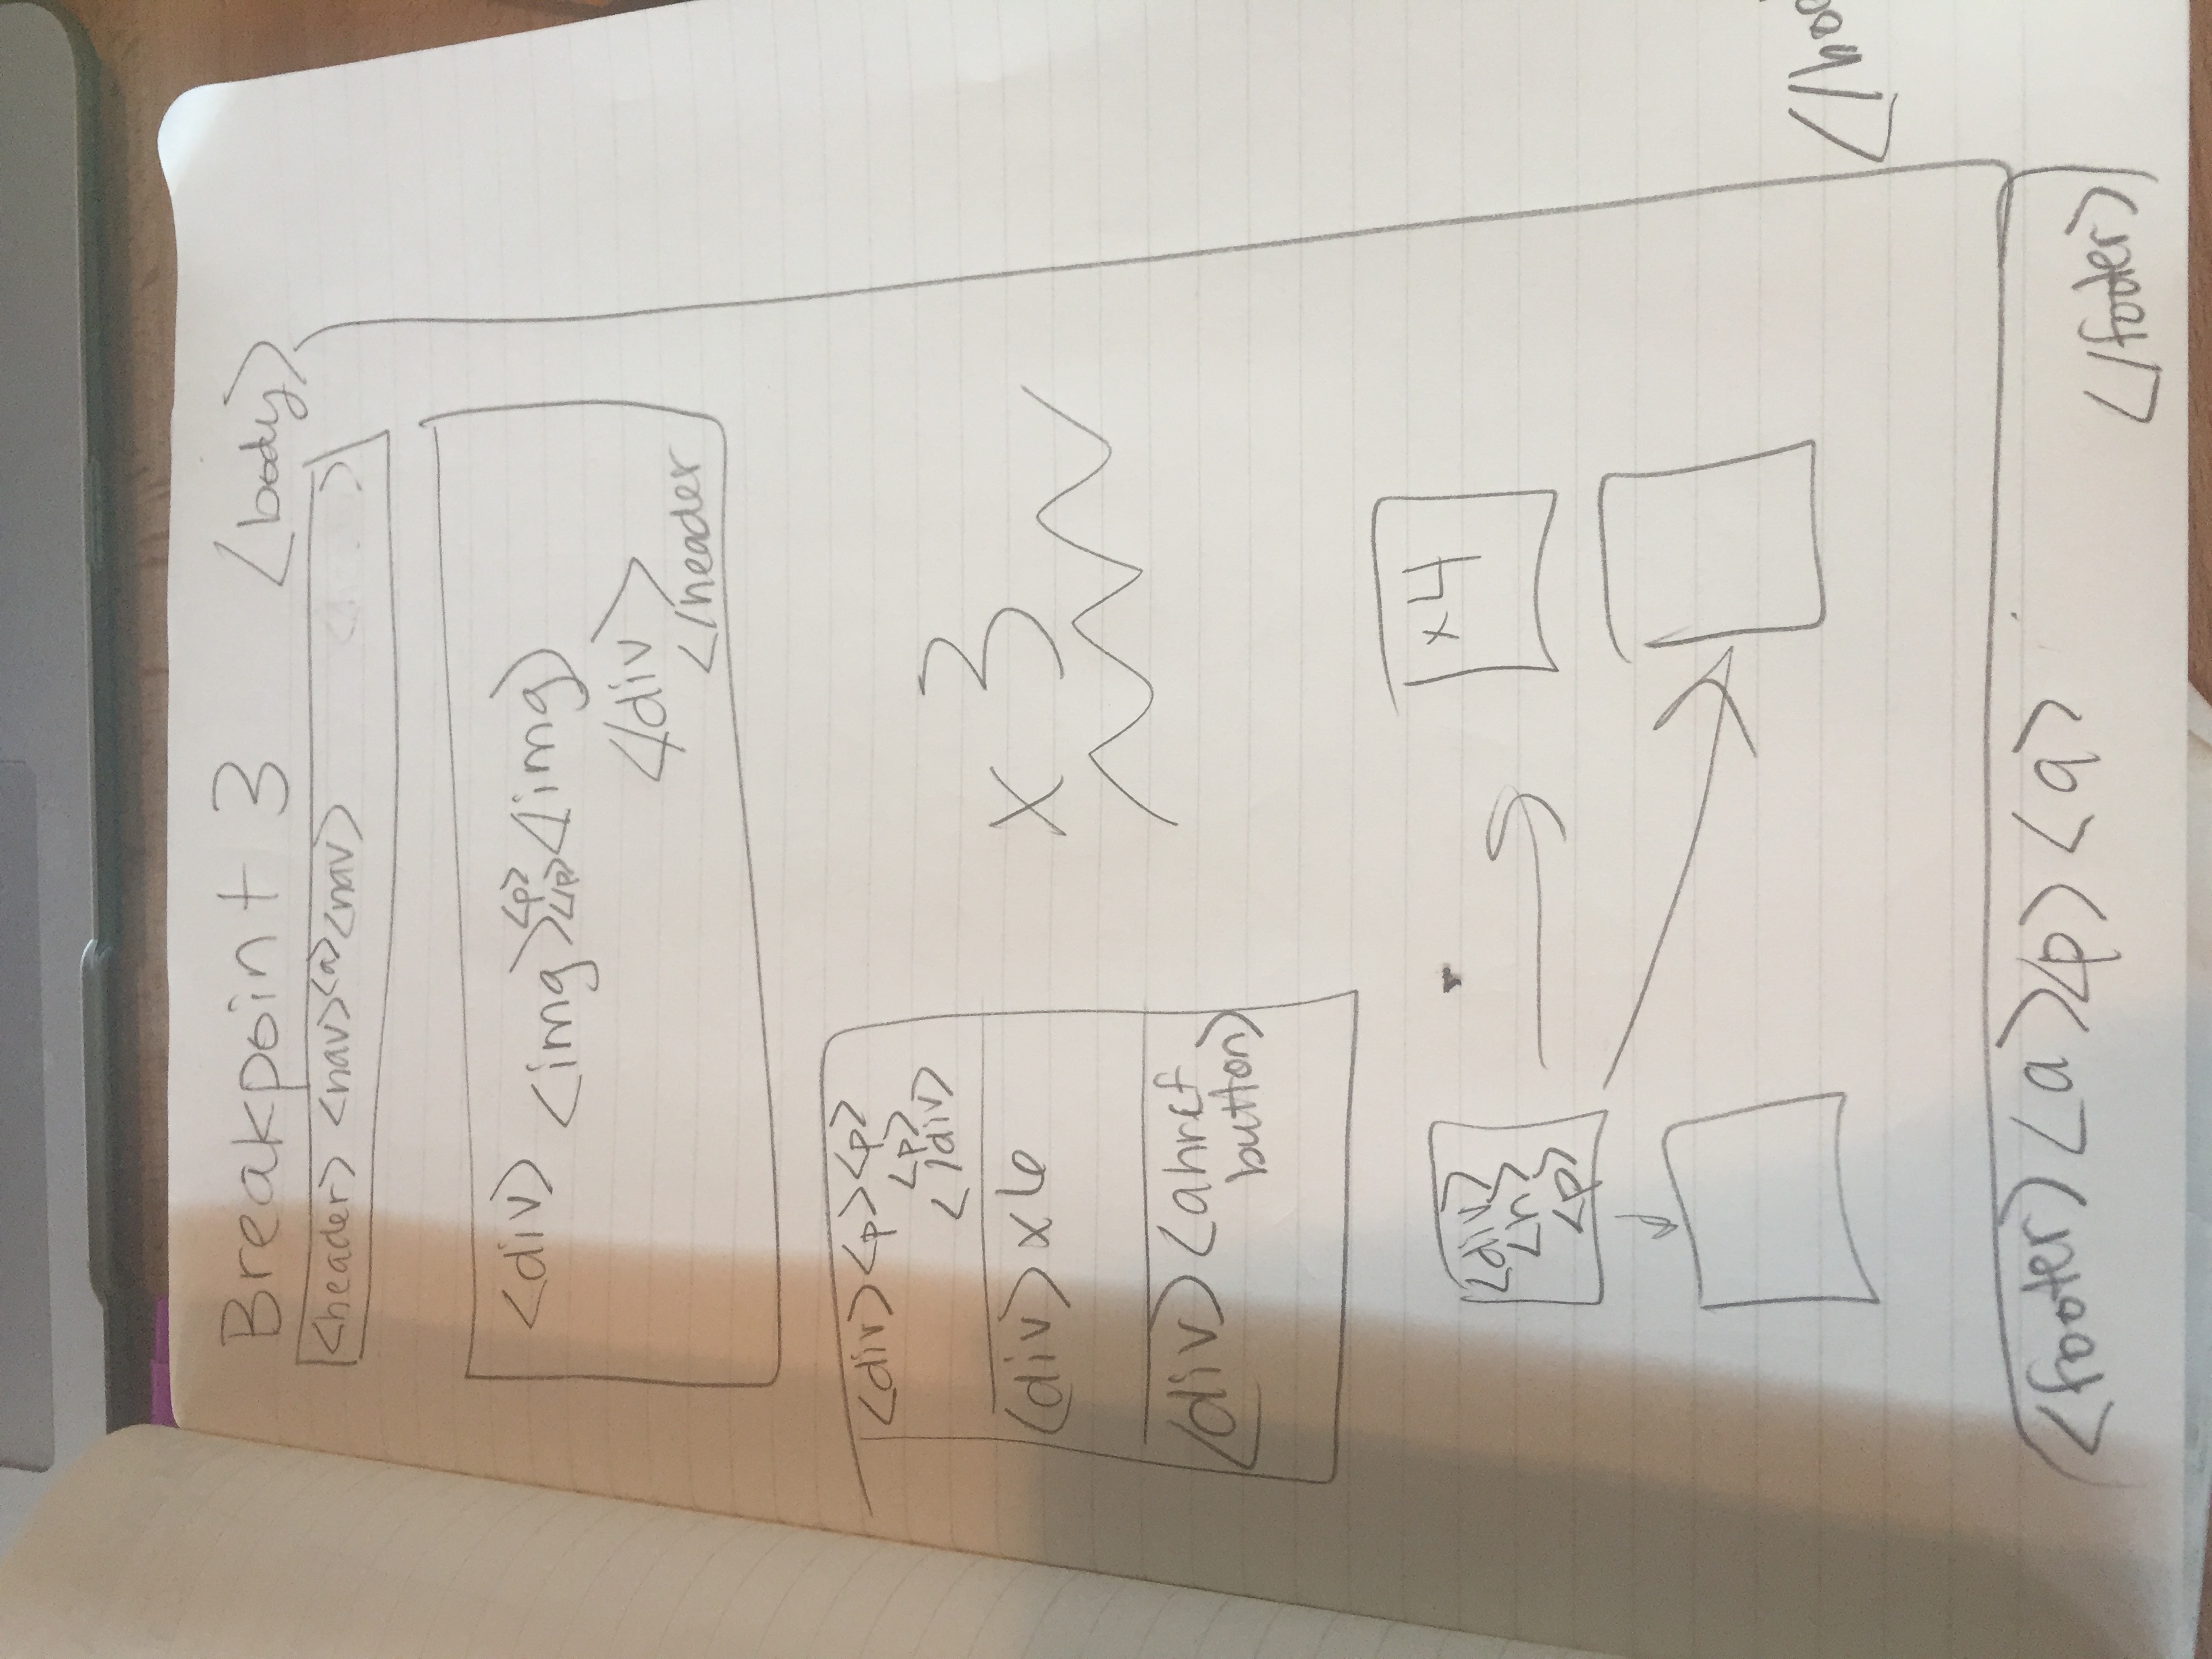 Breakpoint 3 <body>
<header> <nav> <a> <nav>
<div> <img> <p> </p> <img>
</div>
</header
<div> <p> <p>
<p>
</div>
<div> x 6
x 3
<div> <ahref
button>
<div>
<h>
<p>
x4
<footer> <a> <p> <a>
</footer>